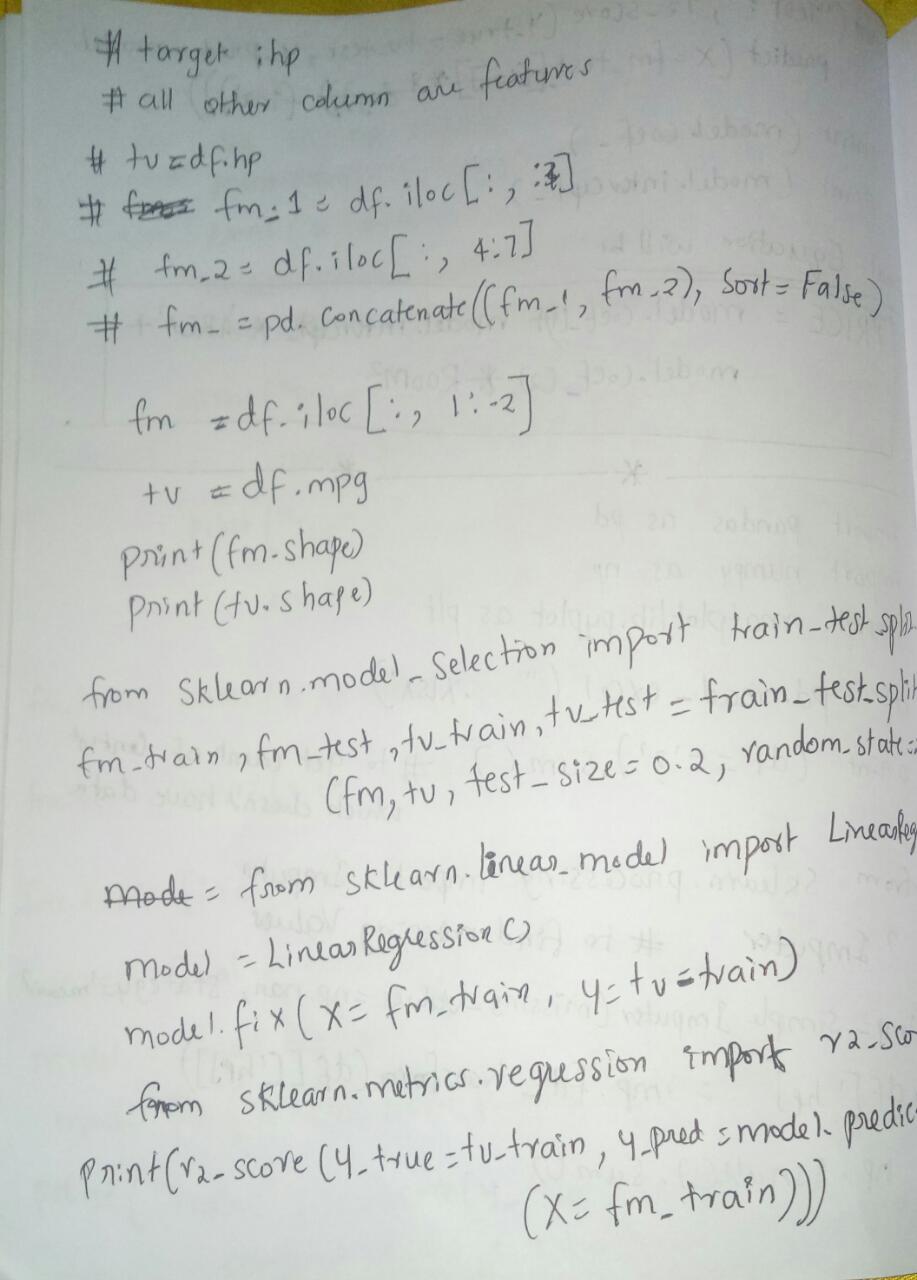 # target : hp
# all other column are features
# tv = df.hp
# fm_1 = df.iloc[:, :3]
# fm_2 = df.iloc[:, 4:7]
# fm_ = pd. concatenate((fm_1, fm_2), Sort = False)
fm = df.iloc[:, 1:-2]
tv = df.mpg
print(fm.shape)
print(tv.shape)
from sklearn.model_selection import train_test_split
fm_train, fm_test, tv_train, tv_test = train_test_split
(fm, tv, test_size = 0.2, random_state =
mode = from sklearn.linear_model import LinearReg
model = LinearRegression()
model.fix(X = fm_train, y = tv=train)
from sklearn.metrics.regression import r2_sco
print(r2_score(y_true = tv_train, y_pred = model.predic
(X = fm_train)))